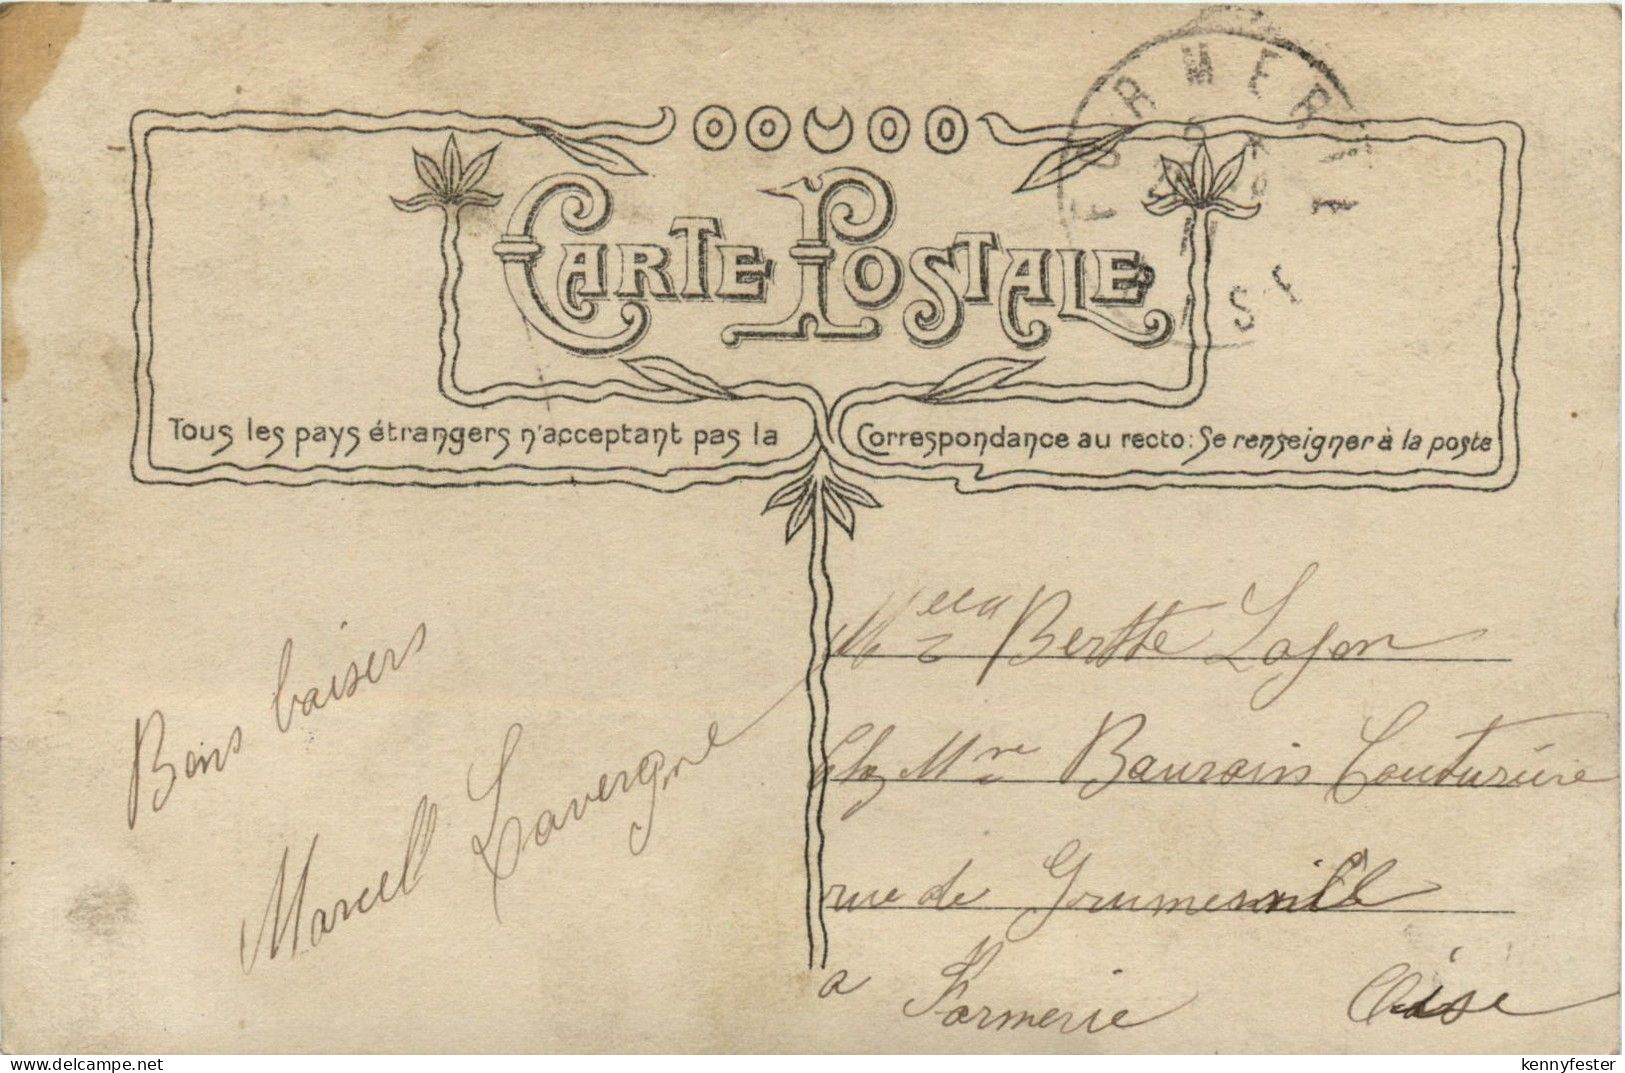 CARTE POSTALE
FORMERIE
Tous les pays étrangers n'acceptant pas la Correspondance au recto: Se renseigner à la poste
Bons baisers
Marcel Lavergne
Melle Berthe Lafon
Chez Mme Baurain Couturière
rue de Grumesnille
a Formerie Oise
delcampe.net
kennyfester